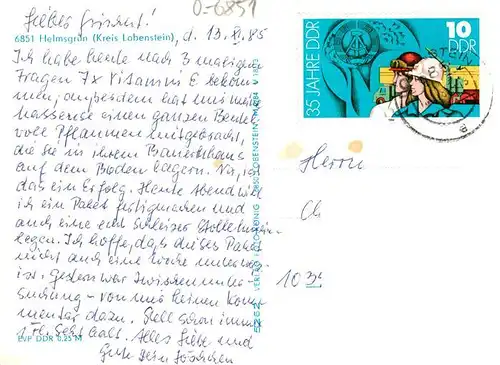 Liebes
0-6851
6851 Helmsgrün (Kreis Lobenstein), d. 13. 11. 85
Ich habe heute nach 3 maligen
Fragen 7x Vitamin E bekom-
men, außerdem hat uns
einen ganzen Beutel
voll Pflaumen mitgebracht,
die sie in ihrem Bauernhaus
auf dem Boden lagern. Na, ist
das ein Erfolg. Heute Abend will
ich ein Paket fertigmachen und
auch eine Schleizer
legen. Ich hoffe, daß dieses Paket
nicht auch eine Woche unterwegs
ist. Gestern war Zwischenunter-
suchung - von mir keinen Kom-
mentar dazu. Stell schon immer
1 Fl. Sekt kalt. Alles Liebe und
Gute Dein
EVP DDR 0,25 M
VERLAG
LOBENSTEIN
35 JAHRE DDR
10
DDR
Herrn